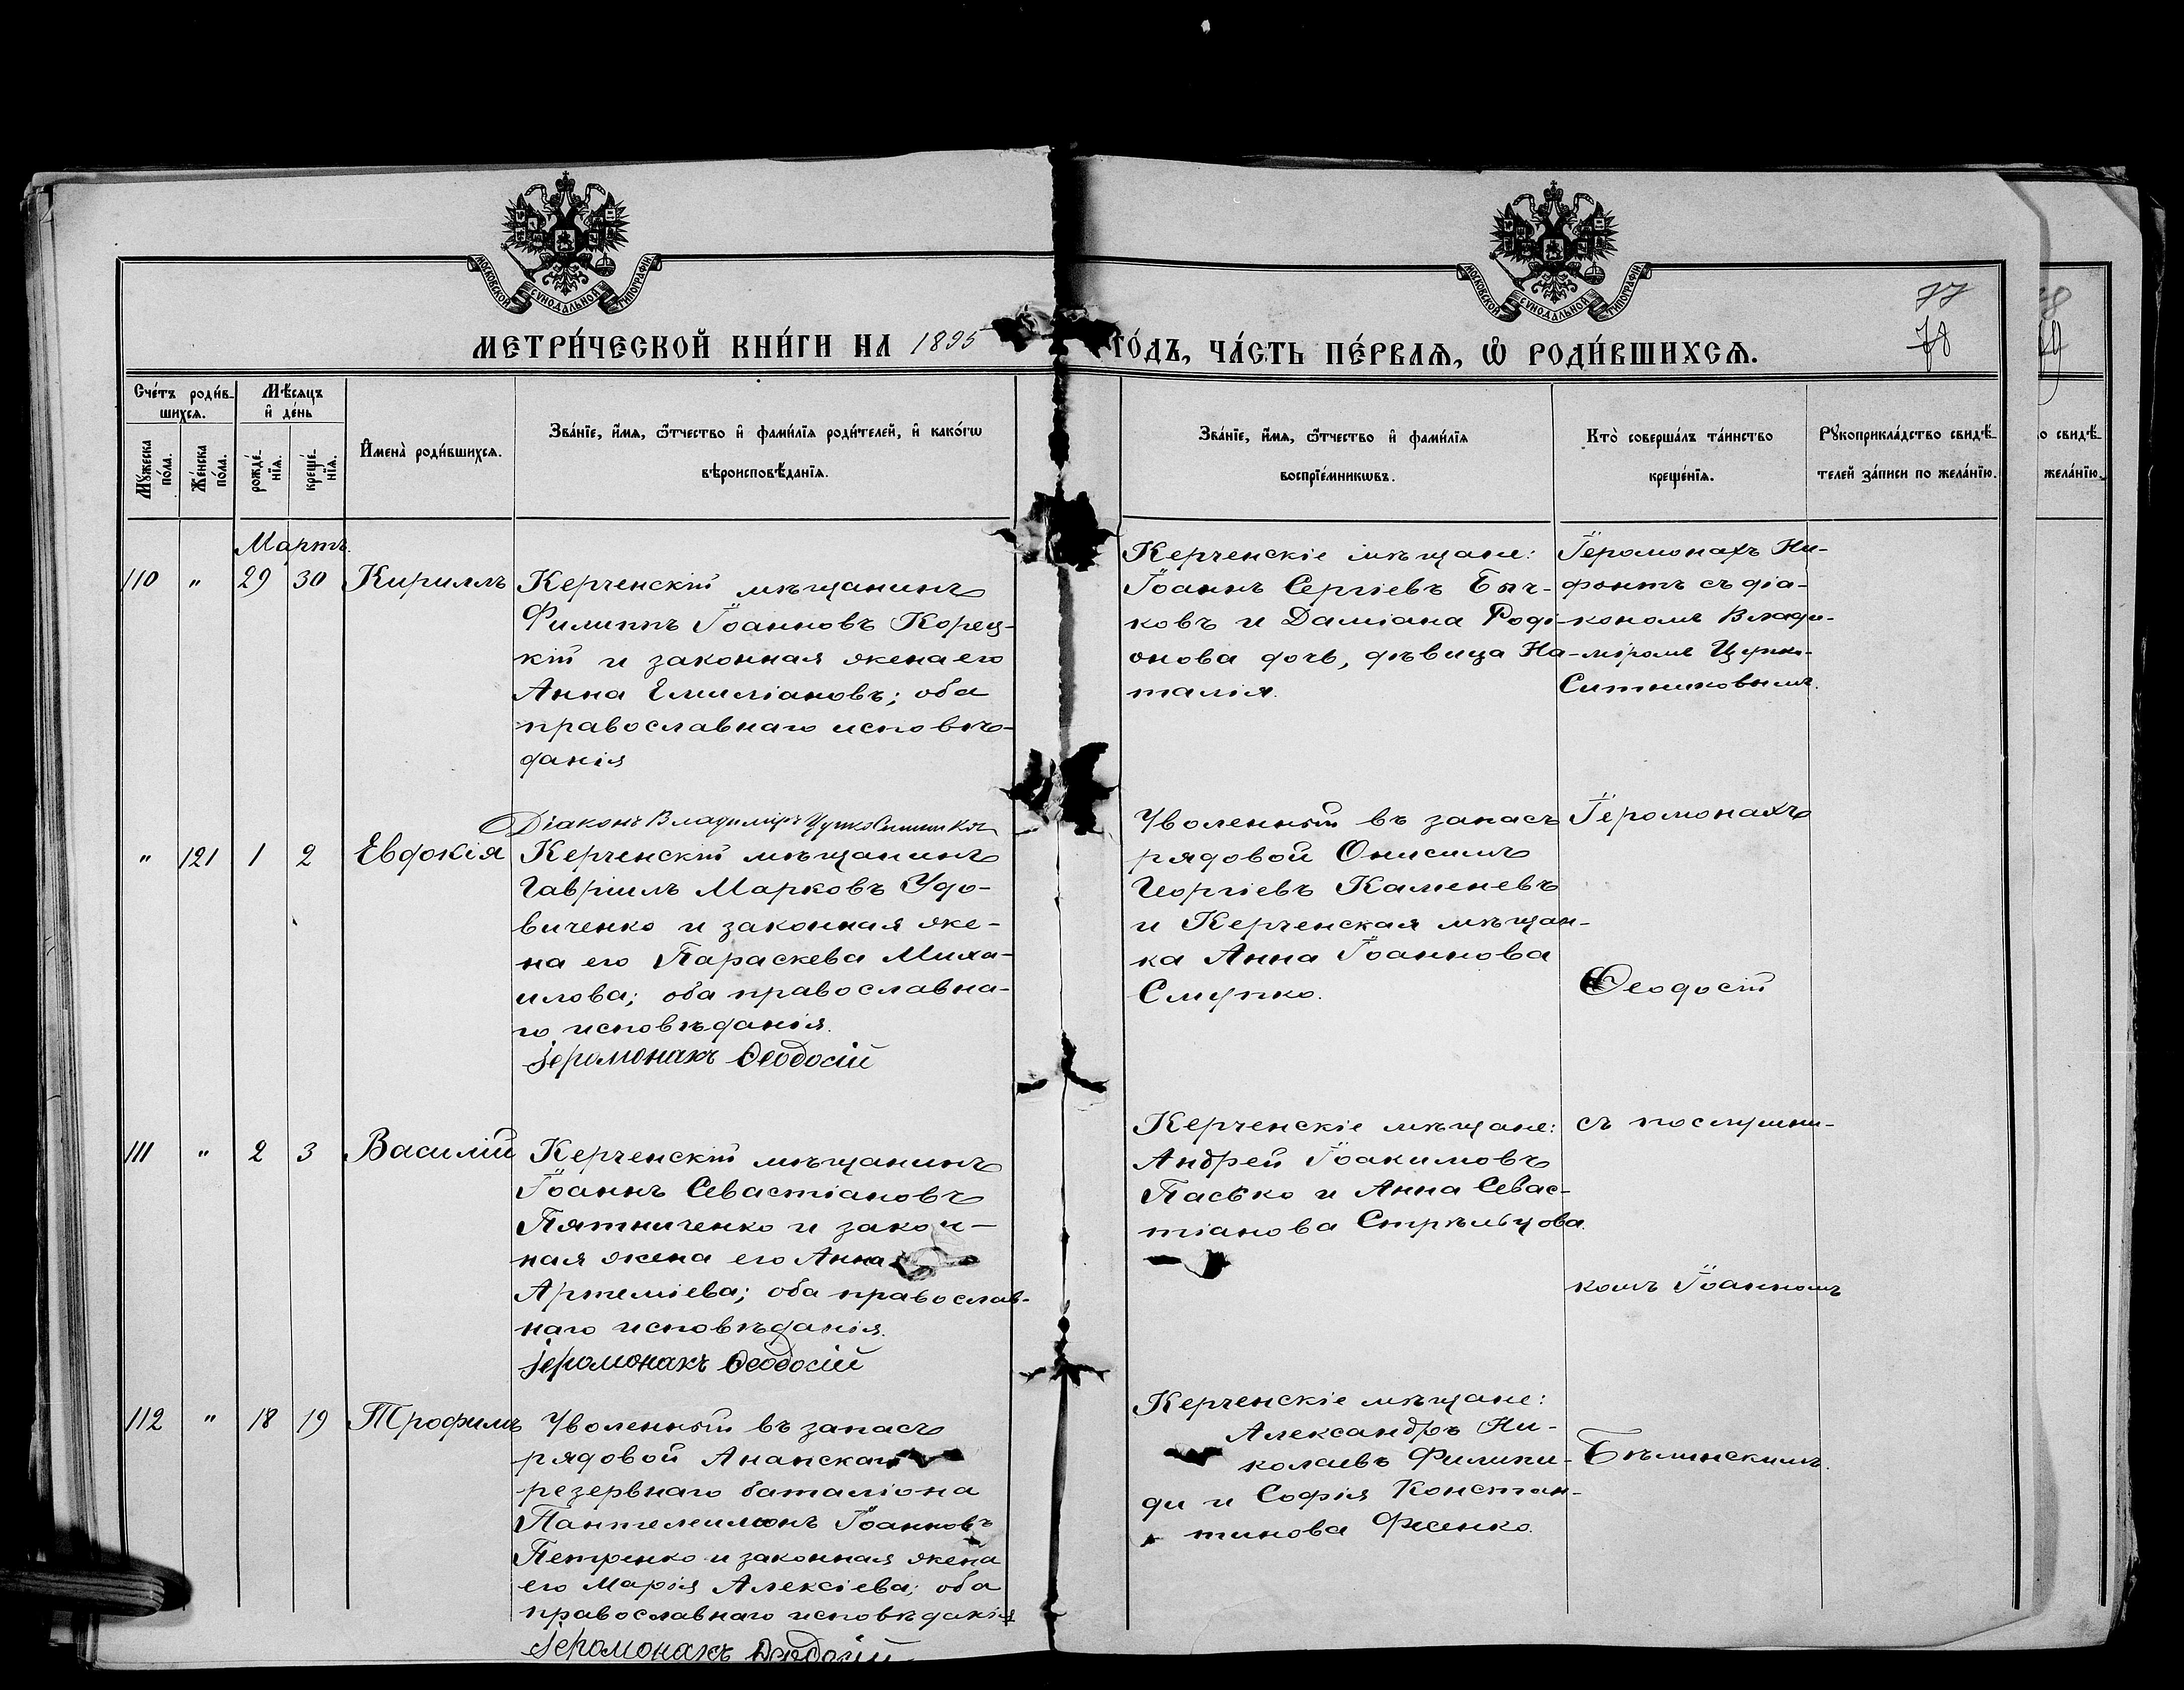 МОСКОВСКОЙ СѴНОДАЛЬНОЙ ТИПОГРАФІИ
МОСКОВСКОЙ СѴНОДАЛЬНОЙ ТИПОГРАФІИ
77
78
МЕТРИ́ЧЕСКОЙ КНИ́ГИ НА 1895
ГО́ДЪ, ЧА́СТЬ ПЕ́РВАЯ, Ѽ РОДИ́ВШИХСЯ.
Сче́тъ роди́в-
шихся.
Мꙋжеска по́ла.
Же́нска по́ла.
Мѣ́сяцъ
и҆ де́нь
рожде́-
нїя.
креще́-
нїя.
И҆мена̀ роди́вшихся.
Зва́нїе, и҆́мя, ѻ҆́тчество и҆ фами́лїя роди́телей, и҆ како́гѡ
вѣроисповѣ́данїя.
Зва́нїе, и҆́мя, ѻ҆́тчество и҆ фами́лїя
воспрїе́мникѡвъ.
Кто̀ соверша́лъ та́инство
креще́нїя.
Рꙋкоприкла́дство свидѣ́-
телей за́писи по жела́нїю.
о свидѣ́-
жела́нїю.
Мартъ.
110 " 29 30 Кириллъ
Керченскій мѣщанинъ
Филиппъ Іоанновъ Корец-
кій и законная жена его
Анна Емиліановъ; оба
православнаго исповѣ-
данія
Діаконъ Владиміръ Цупко Ситников
Керченскіе мѣщане:
Іоаннъ Сергіевъ Быч-
ковъ и Даміана Роді-
онова дочь, дѣвица На-
талія.
Іеромонахъ Ни-
фонтъ съ діа-
кономъ Влади-
міромъ Цупко-
Ситниковымъ.
" 121 1 2 Евдокія
Керченскій мѣщанинъ
Гавріилъ Марковъ Удо-
виченко и законная же-
на его Параскева Миха-
илова; оба православна-
го исповѣданія.
Іеромонахъ Ѳеодосій
Уволенный въ запасъ
рядовой Онисимъ
Георгіевъ Каменевъ
и Керченская мѣщан-
ка Анна Іоаннова
Смупко.
Іеромонахъ
Ѳеодосій
111 " 2 3 Василій
Керченскій мѣщанинъ
Іоаннъ Севастіановъ
Пятниченко и закон-
ная жена его Анна
Артеміева; оба православ-
наго исповѣданія.
Іеромонахъ Ѳеодосій
Керченскіе мѣщане:
Андрей Іоакимовъ
Пасѣко и Анна Севас-
тіанова Стрѣльцова.
съ послушни-
комъ Іоанномъ
112 " 18 19 Трофимъ
Уволенный въ запасъ
рядовой Анапскаго
резервнаго баталіона
Пантелеимонъ Іоанновъ
Петренко и законная жена
его Марія Алексіева; оба
православнаго исповѣданія
Іеромонахъ Ѳеодосій
Керченскіе мѣщане:
Александръ Ни-
колаевъ Филипи-
ди и Софія Констан-
тинова Фесенко.
Бѣлинскимъ.